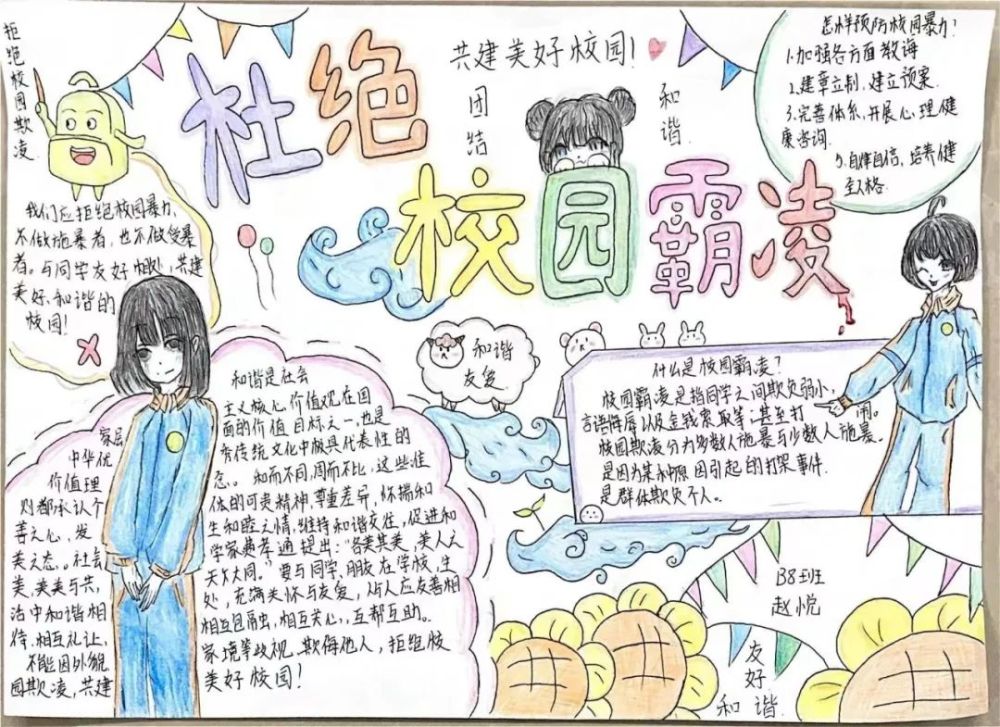 拒绝校园欺凌
杜绝
校园霸凌
共建美好校园!
团结
和谐
怎样预防校园暴力?
1.加强各方面教诲
2.建章立制,建立预案.
3.完善体系,开展心理健
康咨询.
5.自律自信,培养健
全人格.
我们应拒绝校园暴力,
不做施暴者,也不做受暴
者。与同学友好相处,共建
美好、和谐的
校园!
和谐
友爱
什么是校园霸凌?
校园霸凌是指同学之间欺负弱小,
言语侮辱以及金钱索取等,甚至打闹。
校园欺凌分为多数人施暴与少数人施暴。
是因为某种原因引起的打架事件.
是群体欺负个人。
和谐是社会
主义核心价值观在国
家层面的价值目标之一,也是
中华优秀传统文化中极具代表性的
价值理念。和而不同,周而不比,这些准
则都承认个体的可贵精神,尊重差异,怀揣和
善之心,发生和睦之情,维持和谐交往,促进和
美之态。社会学家费孝通提出:“各美其美,美人之
美,美美与共,天下大同。”要与同学、朋友在学校、生
活中和谐相处,充满关怀与友爱,人人应友善相
待、相互礼让,相互包融,相互关心,互帮互助。
不能因外貌、家境等歧视、欺侮他人,拒绝校
园欺凌,共建美好校园!
138班
赵悦
友好
和谐